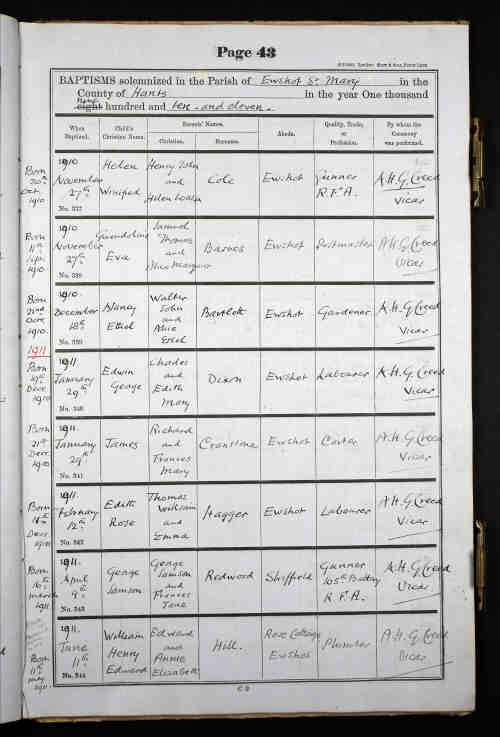 Page 43
BAPTISMS solemnized in the Parish of Ewshot St Mary in the
County of Hants in the year One thousand
eight hundred and ten - and eleven -
When Baptized.
Child's Christian Name.
Parents' Names.
Christian.
Surname.
Abode.
Quality, Trade, or Profession.
By whom the Ceremony was performed.
Born 30th Oct. 1910
1910 November 27th No. 337
Helen Winifred
Henry John and Helen
Cole
Ewshot
Gunner R.F.A.
A.H.G. Creed Vicar
Born 11th 1910
1910 November 27th
Gwendoline Eva
Samuel Thomas and
Barnes
Ewshot
Postmaster
A.H.G. Creed Vicar
Born 22nd 1910.
1910. December 18th No. 339
Nancy Ethel
Walter John and Alice
Bartlett
Ewshot
Gardener
A.H.G. Creed Vicar
1911
Born 19th Decr 1910
1911 January 29th No. 340
Edwin George
Charles and Edith Mary
Dixon
Ewshot
Labourer
A.H.G. Creed Vicar
Born 21st Decr 1910
1911. January 29th No. 341
James
Richard and Frances Mary
Cranstone
Ewshot
Carter
A.H.G. Creed Vicar
Born Decr
1911. February 12th No. 342
Edith Rose
Thomas William and Emma
Hagger
Ewshot
Labourer
A.H.G. Creed Vicar
Born 16th March 1911
1911. April 9th No. 343
George Jamson
George Jamson and Frances Jane
Redword
Gunner 105th Battery R.F.A.
A.H.G. Creed Vicar
Born 11th May 1911
1911. June 11th No. 344
William Henry Edward
Edward and Annie Elizabeth
Hill.
Rose Cottage Ewshot
Plumber
A.H.G. Creed Vicar